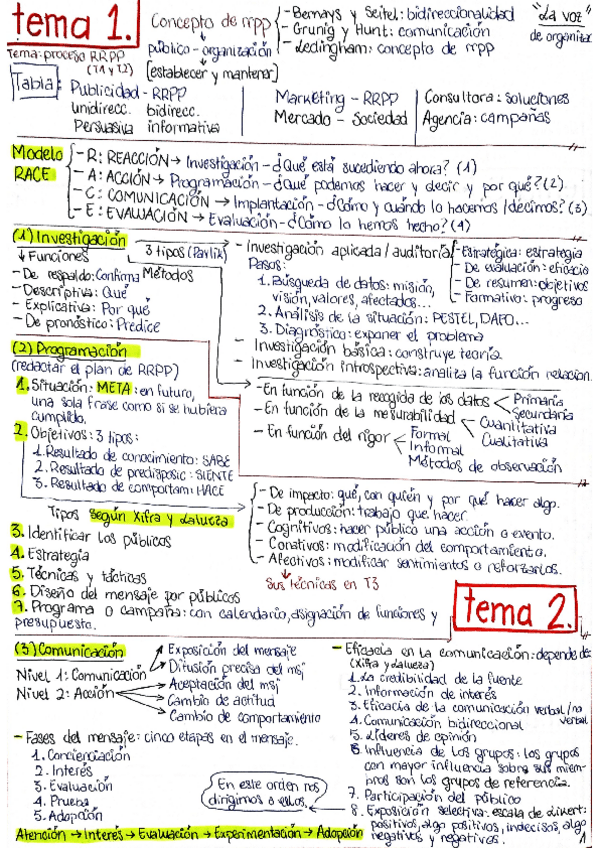 tema 1.
Concepto de rrpp
público - organización
[establecer y mantener]
- Bernays y Seitel: bidireccionalidad
- Grunig y Hunt: comunicación
- Ledingham: concepto de rrpp
"La voz"
de organizac
Tema: proceso RRPP
(T1 y T2)
Tabla:
Publicidad - RRPP
unidirecc. bidirecc.
Persuasiva informativa
Marketing - RRPP
Mercado - Sociedad
Consultora: soluciones
Agencia: campañas
Modelo
RACE
- R: REACCIÓN → Investigación - ¿Qué está sucediendo ahora? (1)
- A: ACCIÓN → Programación - ¿Qué podemos hacer y decir y por qué? (2)
- C: COMUNICACIÓN → Implantación - ¿Cómo y cuándo lo hacemos/decimos? (3)
- E: EVALUACIÓN → Evaluación - ¿Cómo lo hemos hecho? (4)
(1) Investigación
↓ Funciones
- De respaldo: Confirma
- Descriptiva: Qué
- Explicativa: Por qué
- De pronóstico: Predice
3 tipos (Pavlik)
Métodos
- Investigación aplicada/auditorial
- Estratégica: estrategia
- De evaluación: eficacia
- De resumen: objetivos
- Formativo: progreso
Pasos:
1. Búsqueda de datos: misión,
visión, valores, afectados...
2. Análisis de la situación: PESTEL, DAFO...
3. Diagnóstico: exponer el problema
- Investigación básica: construye teoría
- Investigación introspectiva: analiza la función relacion.
- En función de la recogida de los datos
Primaria
Secundaria
- En función de la mesurabilidad
Cuantitativa
Cualitativa
- En función del rigor
Formal
Informal
Métodos de observación
(2) Programación
(redactar el plan de RRPP)
1. Situación: META: en futuro,
una sola frase como si se hubiera
cumplido.
2. Objetivos: 3 tipos:
1. Resultado de conocimiento: SABE
2. Resultado de predisposic: SIENTE
3. Resultado de comportam: HACE
Tipos según Xifra y Lalueza
- De impacto: qué, con quién y por qué hacer algo.
- De producción: trabajo que hacer.
- Cognitivos: hacer público una acción o evento.
- Conativos: modificación del comportamiento.
- Afectivos: modificar sentimientos o reforzarlos.
3. Identificar los públicos
4. Estrategia
5. Técnicas y tácticas
Sus técnicas en T3
6. Diseño del mensaje por públicos
7. Programa o campaña: con calendario, asignación de funciones y
presupuesto.
tema 2.
(3) Comunicación
Nivel 1: Comunicación
Nivel 2: Acción
Exposición del mensaje
Difusión precisa del msj
Aceptación del msj
Cambio de actitud
Cambio de comportamiento
- Fases del mensaje: cinco etapas en el mensaje.
1. Concienciación
2. Interés
3. Evaluación
4. Prueba
5. Adopción
En este orden nos
dirigimos a estos.
Atención → Interés → Evaluación → Experimentación → Adopción
- Eficacia en la comunicación: depende de:
(Xifra y Lalueza)
1. La credibilidad de la fuente
2. Información de interés
3. Eficacia de la comunicación verbal/no
verbal
4. Comunicación bidireccional
5. Líderes de opinión
6. Influencia de los grupos: los grupos
con mayor influencia sobre sus miem-
bros son los grupos de referencia.
7. Participación del público
8. Exposición selectiva: escala de Likert:
positivos, algo positivos, indecisos, algo
negativos y negativos.
1